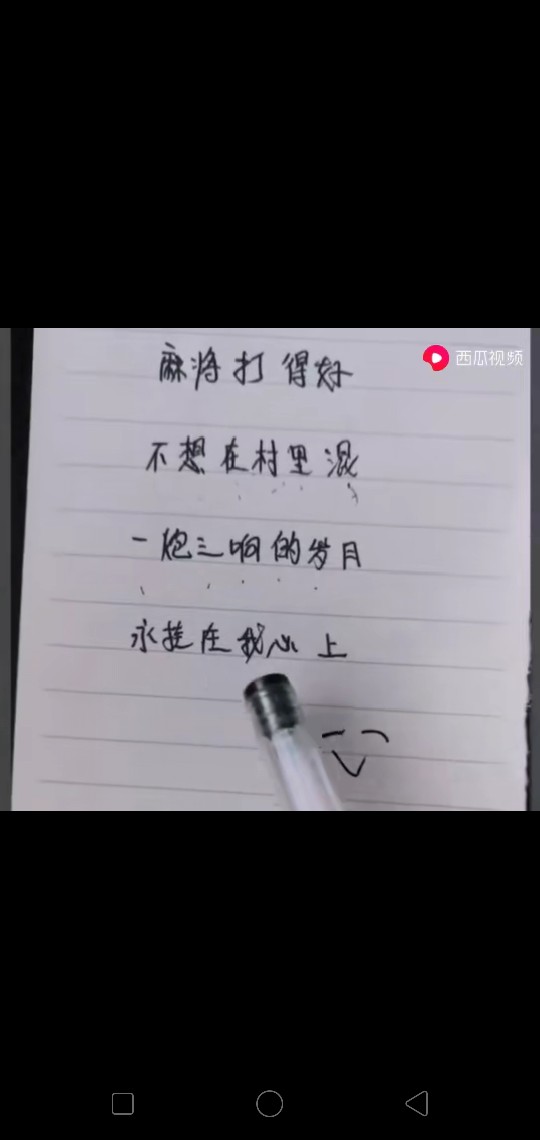 西瓜视频
麻将打得好
不想在村里混
一炮三响的岁月
永挂在我心上